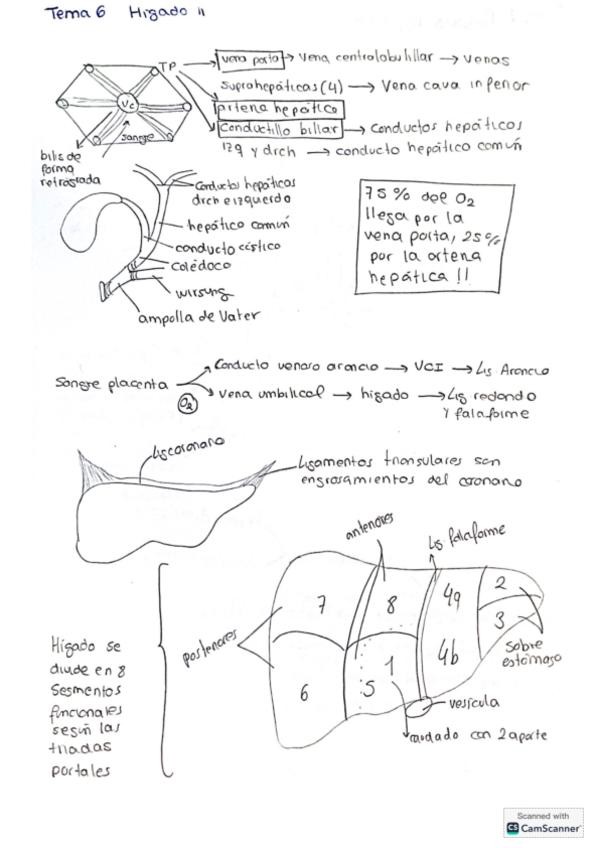 Tema 6 Hígado 11
TP
vena porta → Vena centrolobulillar → venas
suprahepáticas (4) → Vena cava inferior
arteria hepática
Conductillo biliar → Conductos hepáticos
izq y drch → conducto hepático común
Vc
sangre
bilis de
forma
retrógrada
Conductos hepáticos
drch e izquerdo
hepático común
conducto cístico
Colédoco
wirsung
ampolla de Vater
75% del O2
llega por la
vena porta, 25%
por la arteria
hepática !!
Sangre placenta
O2
Conducto venoso arancio → VCI → Lig Arancio
Vena umbilical → hígado → Lig redondo
y falciforme
Lig coronario
Ligamentos triangulares son
engrosamientos del coronario
anteriores
Lig falciforme
posteriores
7
8
4a
2
3
6
5
1
4b
sobre
estómago
vesícula
rodado con 2 aparte
Hígado se
divide en 8
Segmentos
funcionales
según las
triadas
portales
Scanned with
CS CamScanner